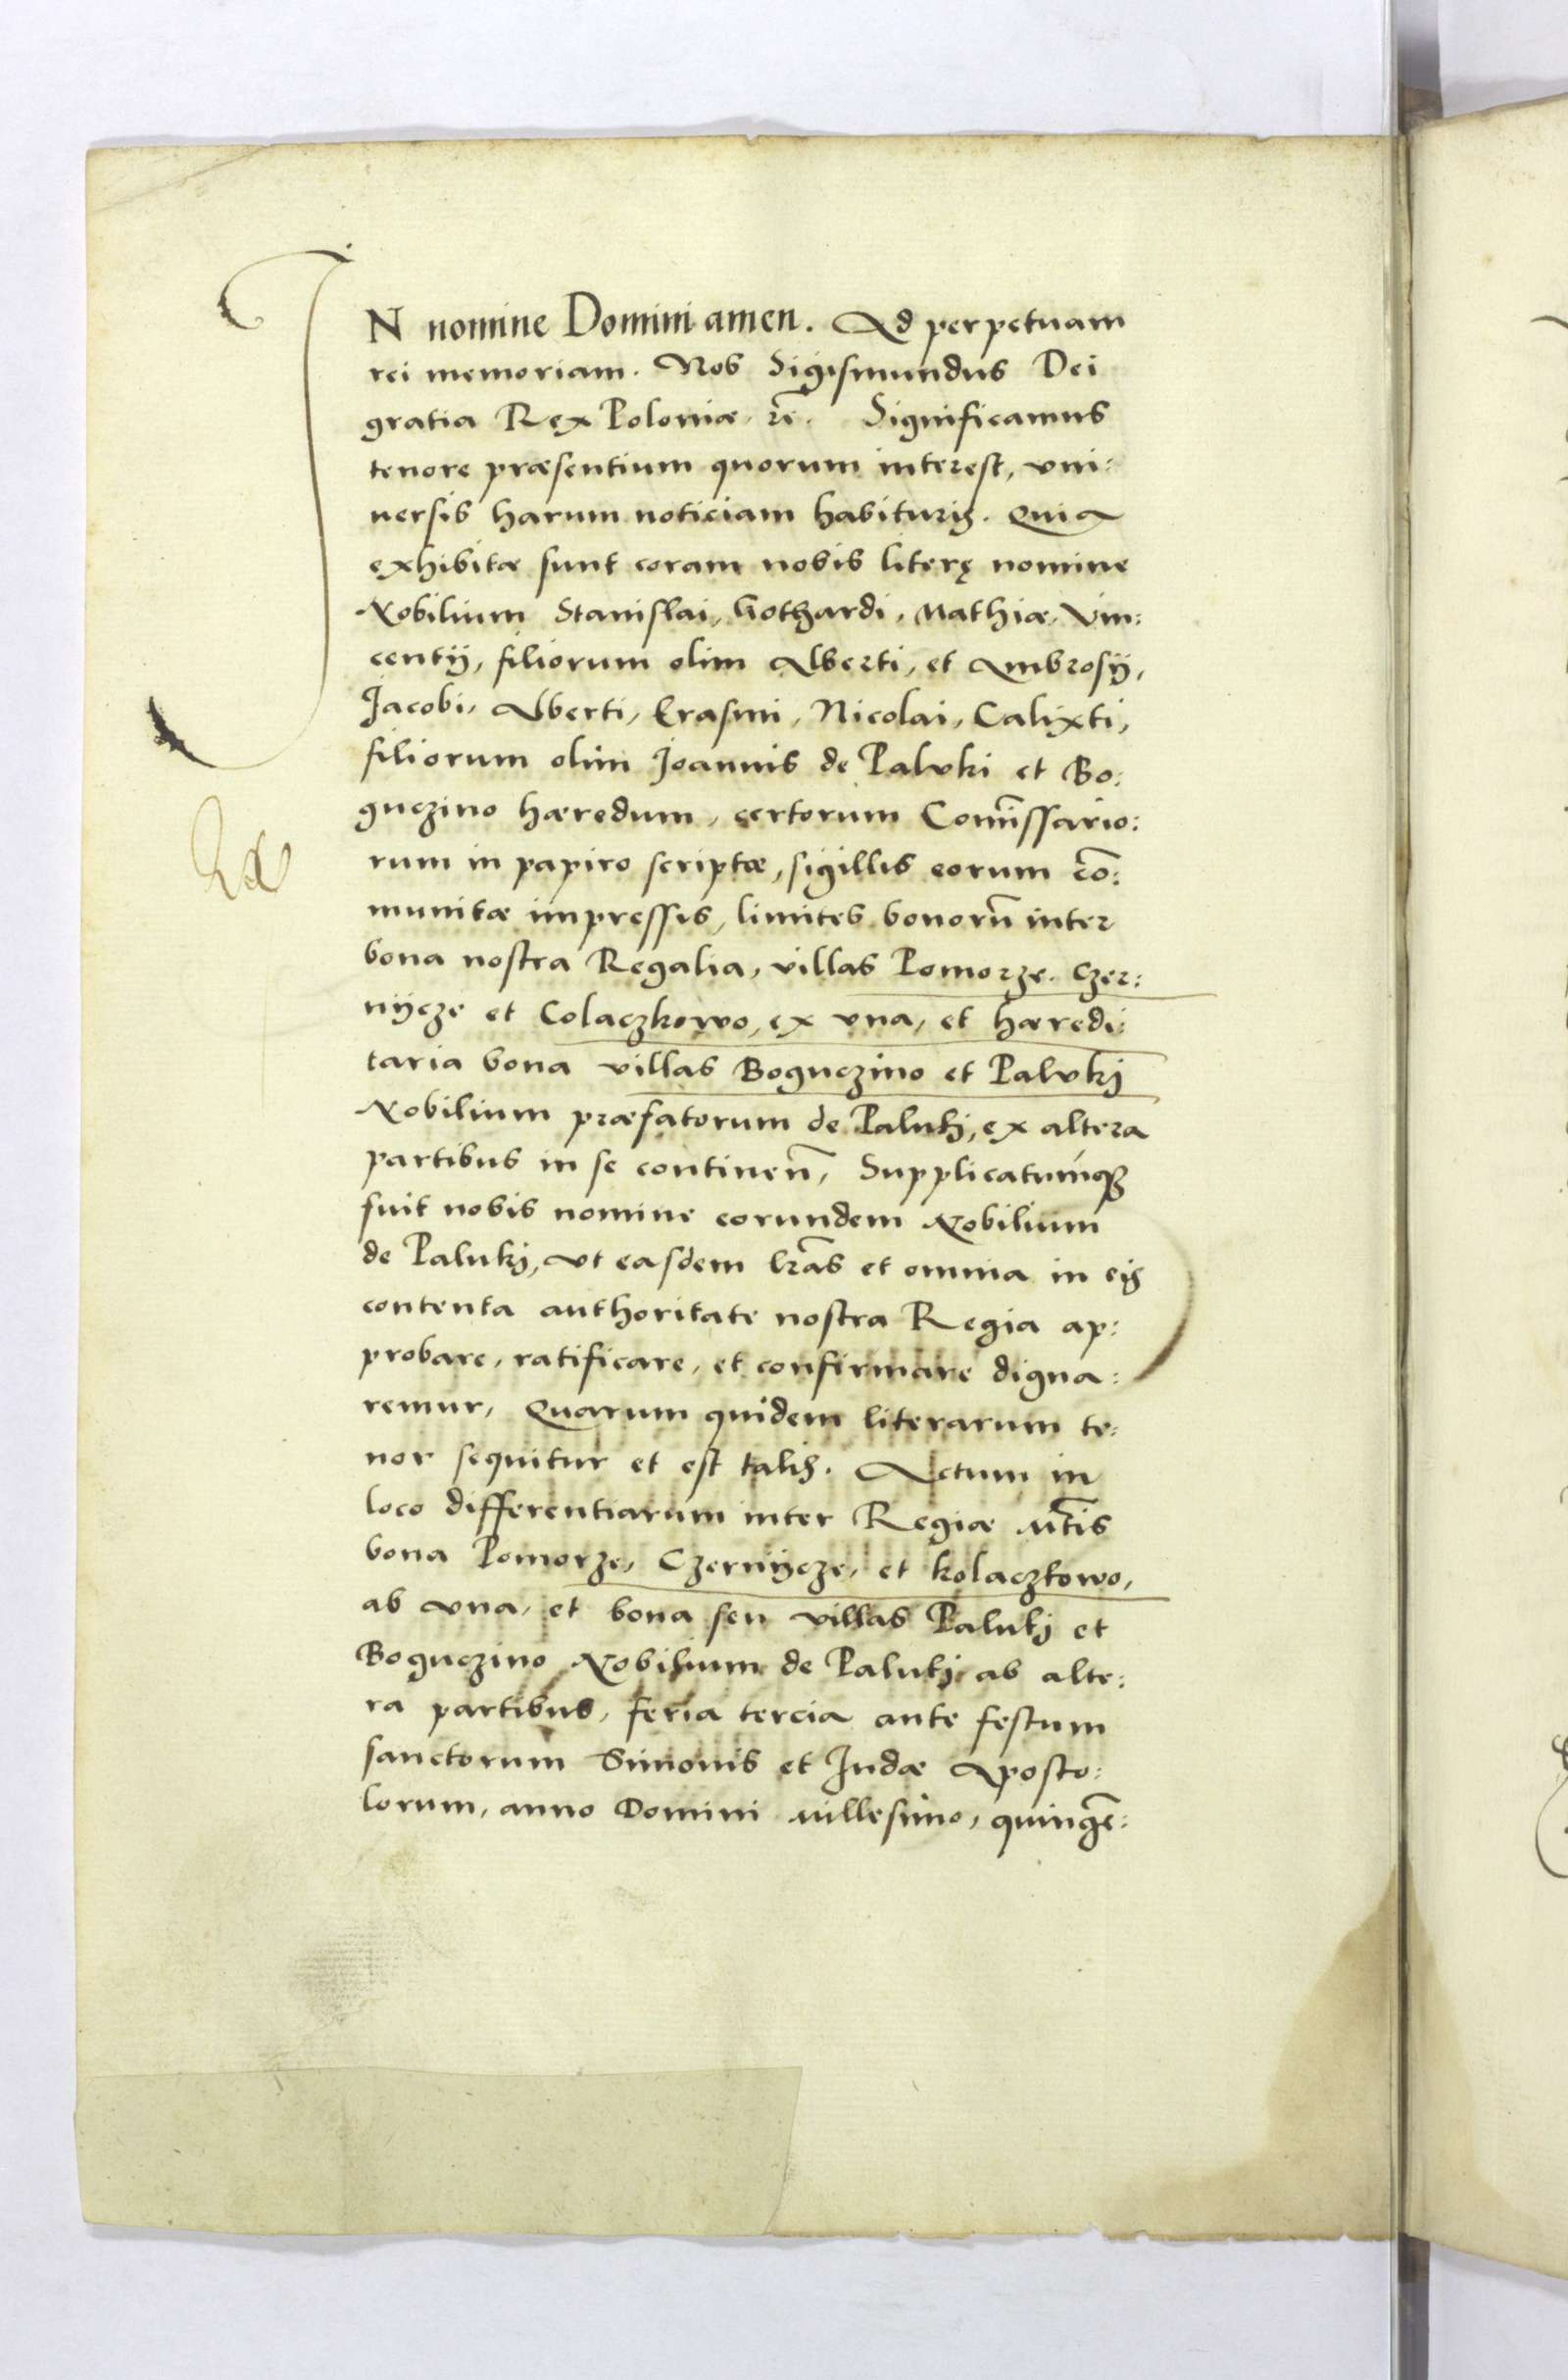 IN nomine Domini amen. Ad perpetuam
rei memoriam. Nos Sigismundus Dei
gratia Rex Poloniæ. rc̄. Significamus
tenore præsentium quorum interest, vni:
uersis harum noticiam habituris. Quia
exhibitæ sunt coram nobis literę nomine
Nobilium Stanislai, Gothardi, Mathiæ, Vin:
centij, filiorum olim Alberti, et Ambrosij,
Jacobi, Alberti, Erasmi, Nicolai, Calixti,
filiorum olim Joannis de Palvki et Bo:
guczino hæredum, certorum Com̄issario:
rum in papiro scriptæ, sigillis eorum cō:
munitæ impressis, limites bonorū inter
bona nostra Regalia, villas Pomorze. Czer:
nijcze et Colaczkowo, ex vna, et hæredi:
taria bona villas Boguczino et Palvkj
Nobilium præfatorum de Palukj, ex altera
partibus in se continen̄, Supplicatumqꝫ
fuit nobis nomine eorundem Nobilium
de Palukj, vt easdem lr̄as et omnia in eis
contenta authoritate nostra Regia ap:
probare, ratificare, et confirmare digna:
remur, Quarum quidem literarum te:
nor sequitur et est talis. Actum in
loco differentiarum inter Regiæ Mt̄is
bona Pomorze, Czernijcze, et kolaczkowo,
ab vna, et bona seu villas Palukj et
Boguczino Nobilium de Palukj ab alte:
ra partibus, feria tercia ante festum
sanctorum Simonis et Judæ Aposto:
lorum, anno Domini Millesimo, quingē: